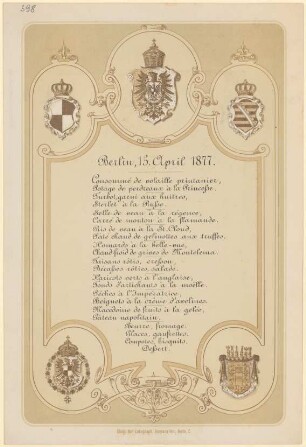 398
Berlin, 15. April 1877.
Consommé de volaille printanier,
Potage de perdreaux à la Princesse.
Turbot garni aux huîtres,
Sterlet à la Russe.
Selle de veau à la régence,
Carré de mouton à la flamande.
Ris de veau à la St. Cloud,
Pâté chaud de gelinottes aux truffes.
Homards à la belle-vue,
Chaudfroid de grives de Montelema.
Faisans rôtis, cresson,
Bécasses rôties, salade.
Haricots verts à l'anglaise,
Fonds d'artichauts à la moëlle.
Pêches à l'Impératrice,
Beignets à la crème d'avelines.
Macédoine de fruits à la gelée,
Gâteau napolitain.
Beurre, fromage.
Glaces, gaufrettes.
Compotes, bisquits.
Dessert